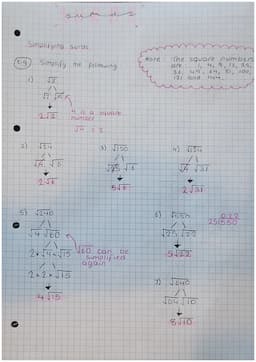 surds
Simplifying surds
e.g. Simplify the following
Note: The square numbers
are: 1, 4, 9, 16, 25,
36, 49, 64, 81, 100,
121 and 144.
1) √8
√4 √2
2√2
4 is a square
number
√4 = 2
2) √24
√4 √6
2√6
3) √150
√25 √6
5√6
4) √124
√4 √31
2√31
5) √240
√4 √60
2 × √4 × √15
2 × 2 × √15
4√15
√60 can be
simplified
again
6) √550
√25 √22
5√22
7) √640
√64 √10
8√10